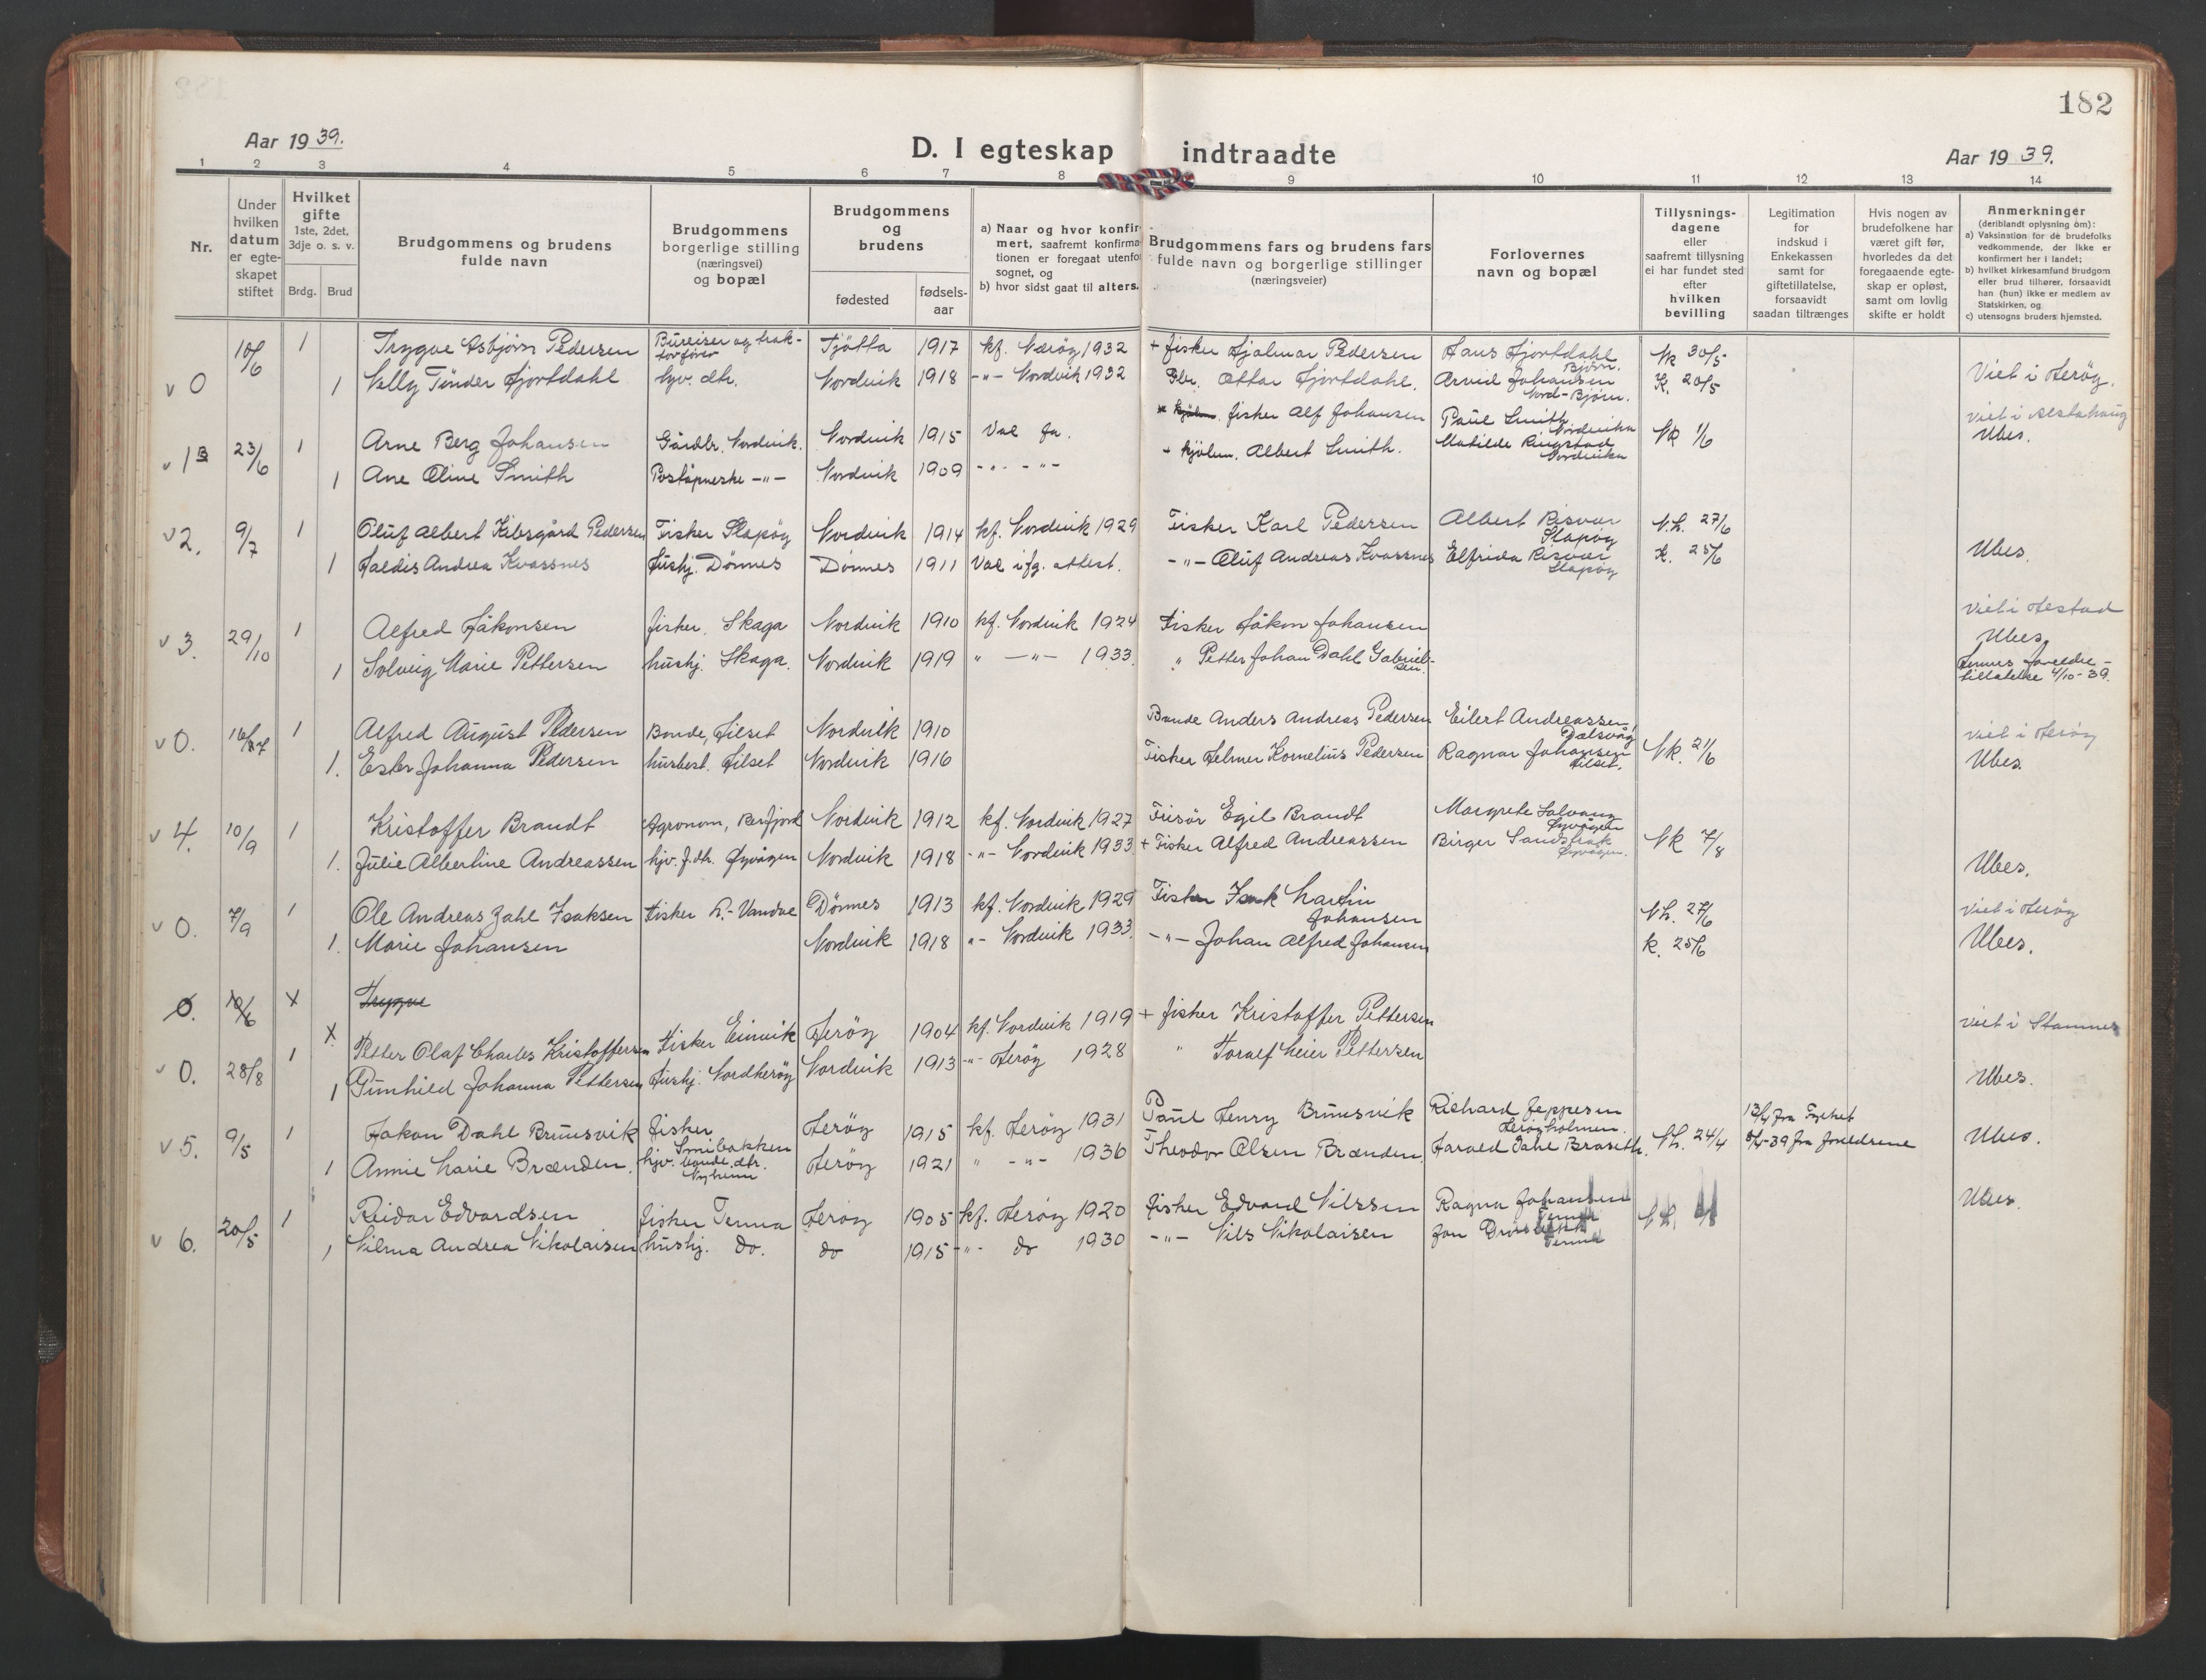 182
Aar 1939.
D. I egteskap indtraadte
Aar 1939.
1 2 3 4 5 6 7 8 9 10 11 12 13 14
Nr.
Under hvilken datum er egteskapet stiftet
Hvilket gifte 1ste, 2det, 3dje o. s. v.
Brdg. Brud
Brudgommens og brudens fulde navn
Brudgommens borgerlige stilling (næringsvei) og bopæl
Brudgommens og brudens
fødested fødsels-aar
a) Naar og hvor konfirmert, saafremt konfirmationen er foregaat utenfor sognet, og
b) hvor sidst gaat til alters.
Brudgommens fars og brudens fars fulde navn og borgerlige stillinger (næringsveier)
Forlovernes navn og bopæl
Tillysnings-dagene eller saafremt tillysning ei har fundet sted efter hvilken bevilling
Legitimation for indskud i Enkekassen samt for giftetillatelse, forsaavidt saadan tiltrænges
Hvis nogen av brudefolkene har været gift før, hvorledes da det foregaaende egteskap er opløst, samt om lovlig skifte er holdt
Anmerkninger (deriblandt oplysning om):
a) Vaksination for de brudefolks vedkommende, der ikke er konfirmert her i landet;
b) hvilket kirkesamfund brudgom eller brud tilhører, forsaavidt han (hun) ikke er medlem av Statskirken, og
c) utensogns bruders hjemsted.
v 0 10/6 1 Trygve Asbjørn Pedersen Bureiser og traktorfører Tjøtta 1917 kf. Nærøy 1932 + fisker Hjalmar Pedersen Hans Hjortdahl Bjørn. Nk 30/5
1 Nelly Tønder Hjortdahl hjv. dtr. Nordvik 1918 -"- Nordvik 1932 Gbr. Ottar Hjortdahl. Arvid Johansen Nord-Bjørn. K. 20/5 Viet i Herøy.
v 1B 23/6 1 Arne Berg Johansen Gårdbr. Nordvik. Nordvik 1915 Val fa. fisker Alf Johansen Paul Smith Nordvika Nk 1/6 viet i Alstahaug Ubes.
1 Ane Oline Smith Poståpnerske -"- Nordvik 1909 -"- -"- + kjøbm. Albert Smith. Matilde Ringstad Nordvika
v 2. 9/7 1 Oluf Albert Kibsgård Pedersen Fisker Slapøy Nordvik 1914 kf. Nordvik 1929 Fisker Karl Pedersen Albert Risvær Slapøy N.L. 27/6
1 Haldis Andrea Kvassnes Hushj. Dønnes Dønnes 1911 Val ifg. attest. -"- Oluf Andreas Kvassnes Elfrida Risvær Slapøy K. 25/6 Ubes.
v 3. 29/10 1 Alfred Håkonsen fisker, Skaga Nordvik 1910 kf. Nordvik 1924 Fisker Håkon Johansen viet i Hestad
1 Solveig Marie Pettersen hushj. Skaga. Nordvik 1919 " -"- 1933. " Petter Johan Dahl Gabrielsen. Ubes.
Hennes foreldretillatelse 4/10-39.
v 0. 16/7 1 Alfred August Pedersen Bonde, Hilset Nordvik 1910 Bonde Anders Andreas Pedersen Eilert Andreassen, Dalsvåg viet i Herøy
1. Ester Johanna Pedersen husbest. Hilset Nordvik 1916 Fisker Helmer Kornelius Pedersen Ragnar Johansen Hilset. Nk. 21/6 Ubes.
v 4. 10/9 1 Kristoffer Brandt Agronom, Reinfjord Nordvik 1912 kf. Nordvik 1927 Frisør Egil Brandt Margrete Solvang Øyvågen
1. Julie Albertine Andreassen hjv. f.dtr. Øyvågen Nordvik 1918 -"- Nordvik 1933 + Fisker Alfred Andreassen Birger Sandsbak Øyvågen. Nk 7/8 Ubes.
v 0. 7/9 1 Ole Andreas Zahl Isaksen Fisker N.-Vandve Dønnes 1913 kf. Nordvik 1929 Fisker Isak Martin Johansen N.L. 27/6 viet i Herøy
1. Marie Johansen Nordvik 1918 "- Nordvik 1933. -"- Johan Alfred Johansen k. 25/6 Ubes.
0. 10/6 x Trygve
x
v 0. 28/8 1 Petter Olaf Charles Kristoffersen Fisker Einvik Herøy 1904 kf. Nordvik 1919 + fisker Kristoffer Pettersen viet i Stamnes
1 Gunhild Johanna Pettersen Hushj. Nordherøy Nordvik 1913 -"- Herøy 1928 " Toralf Meier Pettersen Ubes.
v 5. 9/5 1 Hakon Dahl Brunsvik fisker Smibakken Herøy 1915 kf. Herøy 1931 Paul Henry Brunsvik Richard Jeppesen Herøyholmen. 13/4 fra Fylket
1 Annie Marie Brænden. hjv. bonde dtr. Nyheim Herøy 1921 " -"- 1936 Theodor Olsen Brænden. Harald Dahl Braseth. N.L. 24/4 8/4-39 fra foreldrene Ubes.
v 6. 20/5 1 Reidar Edvardsen fisker Tenna Herøy 1905 kf. Herøy 1920 fisker Edvard Nilssen Ragna Johansen Tenna Ubes.
1 Vilma Andrea Nikolaisen hushj. do. do 1915 -"- do 1930 -"- Nils Nikolaisen Jon Tenna